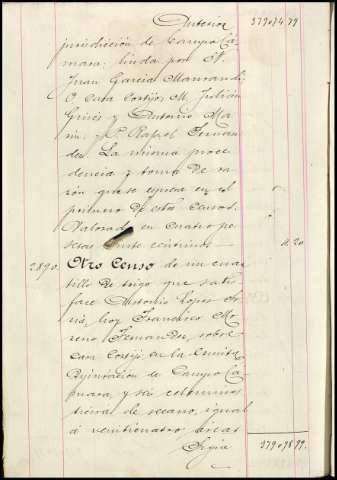 Anterior 379074 79
jurisdicción de Campo Cá-
mara: linda por N.
Juan García
O. Casa Cortijo, M. Julián
y Antonio
y P. Rafael Fernan-
dez. La misma proce-
dencia y toma de ra-
zón que se expresa en el
primero de estos Censos.
Valorado en cuatro pe-
setas veinte céntimos 4 20
2.890. Otro Censo de un cuar-
tillo de trigo que satis-
face Antonio López
hoy Francisco Mo-
reno Fernandez, sobre
Casa Cortijo en la
de Campo Cá-
mara, y seis celemines
de secano, igual
á veinticuatro áreas
Sigue 379078 99.